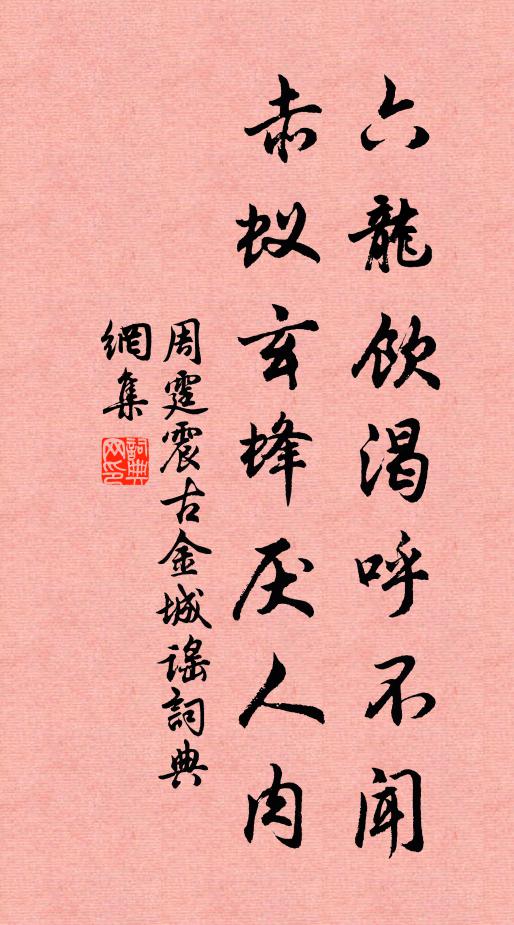 六龍飲渴呼不闻
赤蚁玄蜂厌人肉
周霆震古金城謠詞典
網集
詞典
网印